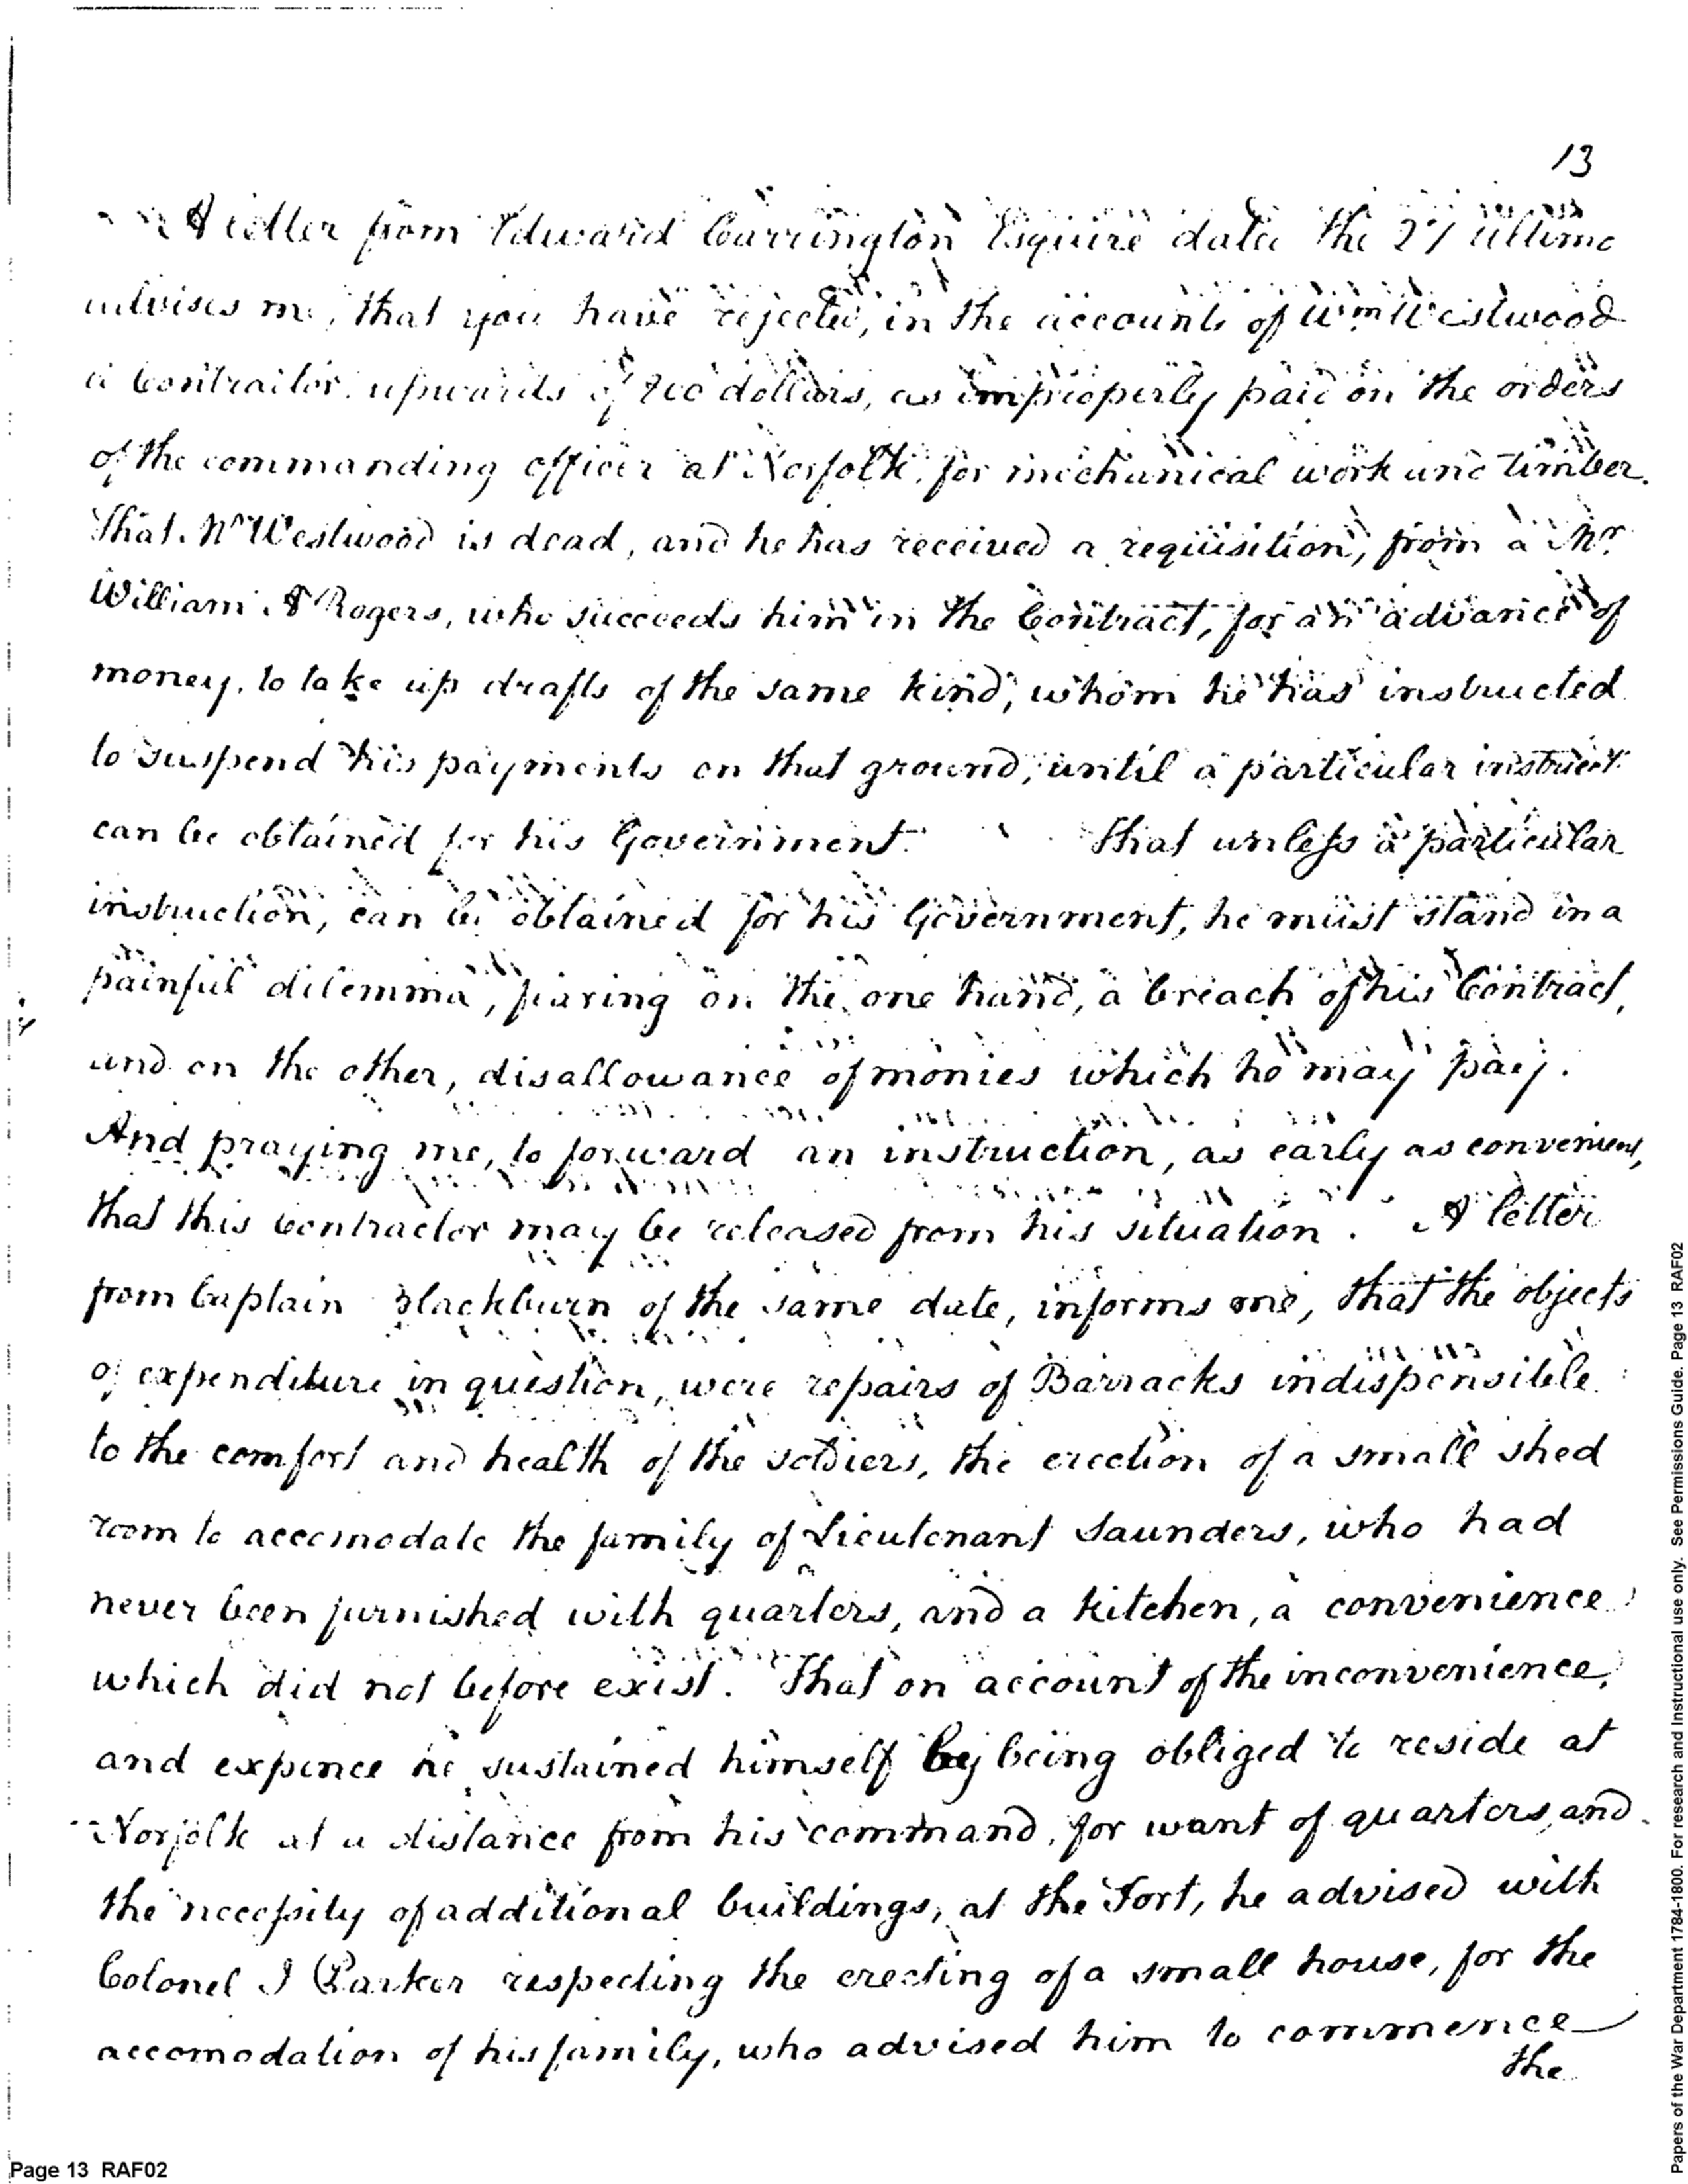 13
A letter from Edward Carrington Esquire date the 27 Ultimo
advises me, that you have rejected, in the accounts of Wm Westwood
a Contractor upwards of dollars, as improperly paid on the orders
of the commanding officer at Norfolk, for mechanical work and timber.
That Mr Westwood is dead, and he has received a requisition, from a Mr
William A Rogers, who succeeds him in the Contract, for an advance of
money, to take up drafts of the same kind, whom he has instructed
to suspend his payments on that ground, until a particular instruct
can be obtained for his Government. That unless a particular
instruction, can be obtained for his Government, he must stand in a
painful dilemma, fearing on the one hand, a breach of his Contract,
and on the other, disallowance of monies which he may pay.
And praying me, to forward an instruction, as early as convenient,
that this Contractor may be released from his situation. A letter
from Captain Blackburn of the same date, informs me, that the objects
of expenditure in question, were repairs of Barracks indispensible
to the comfort and health of the soldiers, the erection of a small shed
room to accomodate the family of Lieutenant Saunders, who had
never been furnished with quarters, and a kitchen, a convenience
which did not before exist. That on account of the inconvenience,
and expence he sustained himself by being obliged to reside at
Norfolk at a distance from his command, for want of quarters, and
the necessity of additional buildings, at the Fort, he advised with
Colonel J Parker respecting the erecting of a small house, for the
accomodation of his family, who advised him to commence
the
Page 13 RAF02
Papers of the War Department 1784-1800. For research and instructional use only. See Permissions Guide. Page 13 RAF02